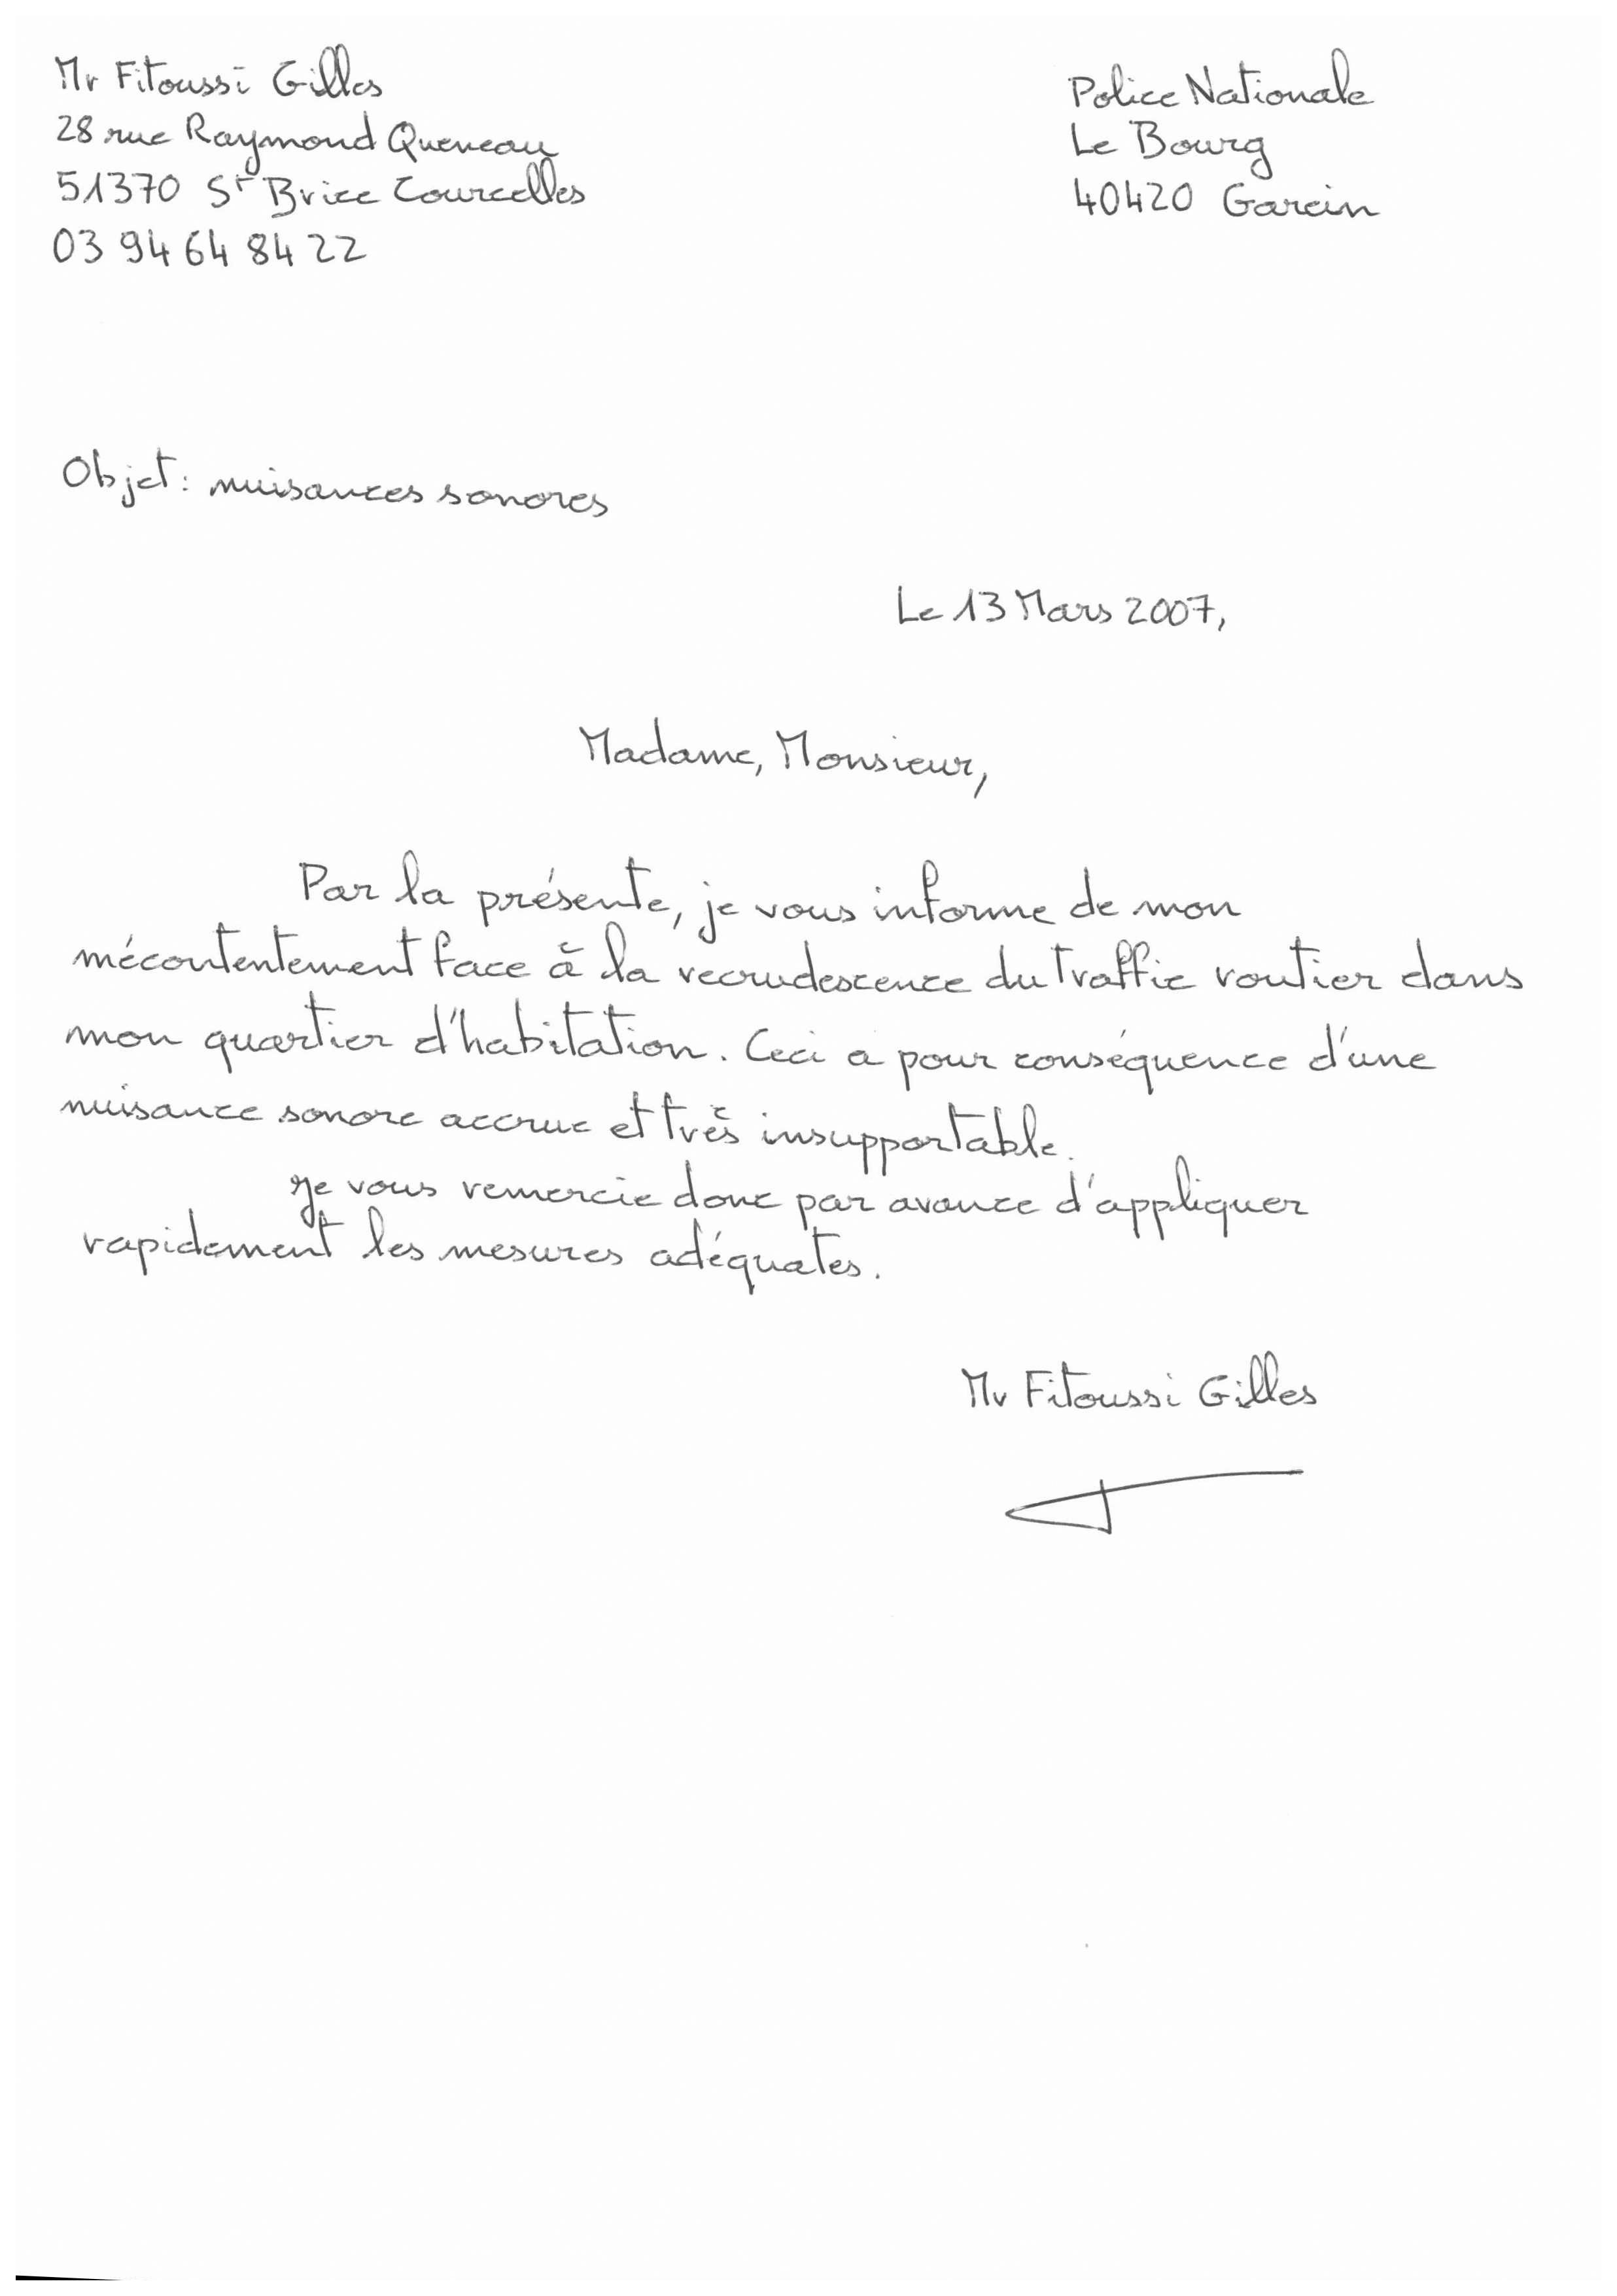 Mr Fitoussi Gilles
28 rue Raymond Queneau
51370 St Brice Courcelles
03 94 64 84 22
Police Nationale
Le Bourg
40420 Garein
Objet : nuisances sonores
Le 13 Mars 2007,
Madame, Monsieur,
Par la présente, je vous informe de mon
mécontentement face à la recrudescence du traffic routier dans
mon quartier d'habitation. Ceci a pour conséquence d'une
nuisance sonore accrue et très insupportable.
Je vous remercie donc par avance d'appliquer
rapidement les mesures adéquates.
Mr Fitoussi Gilles